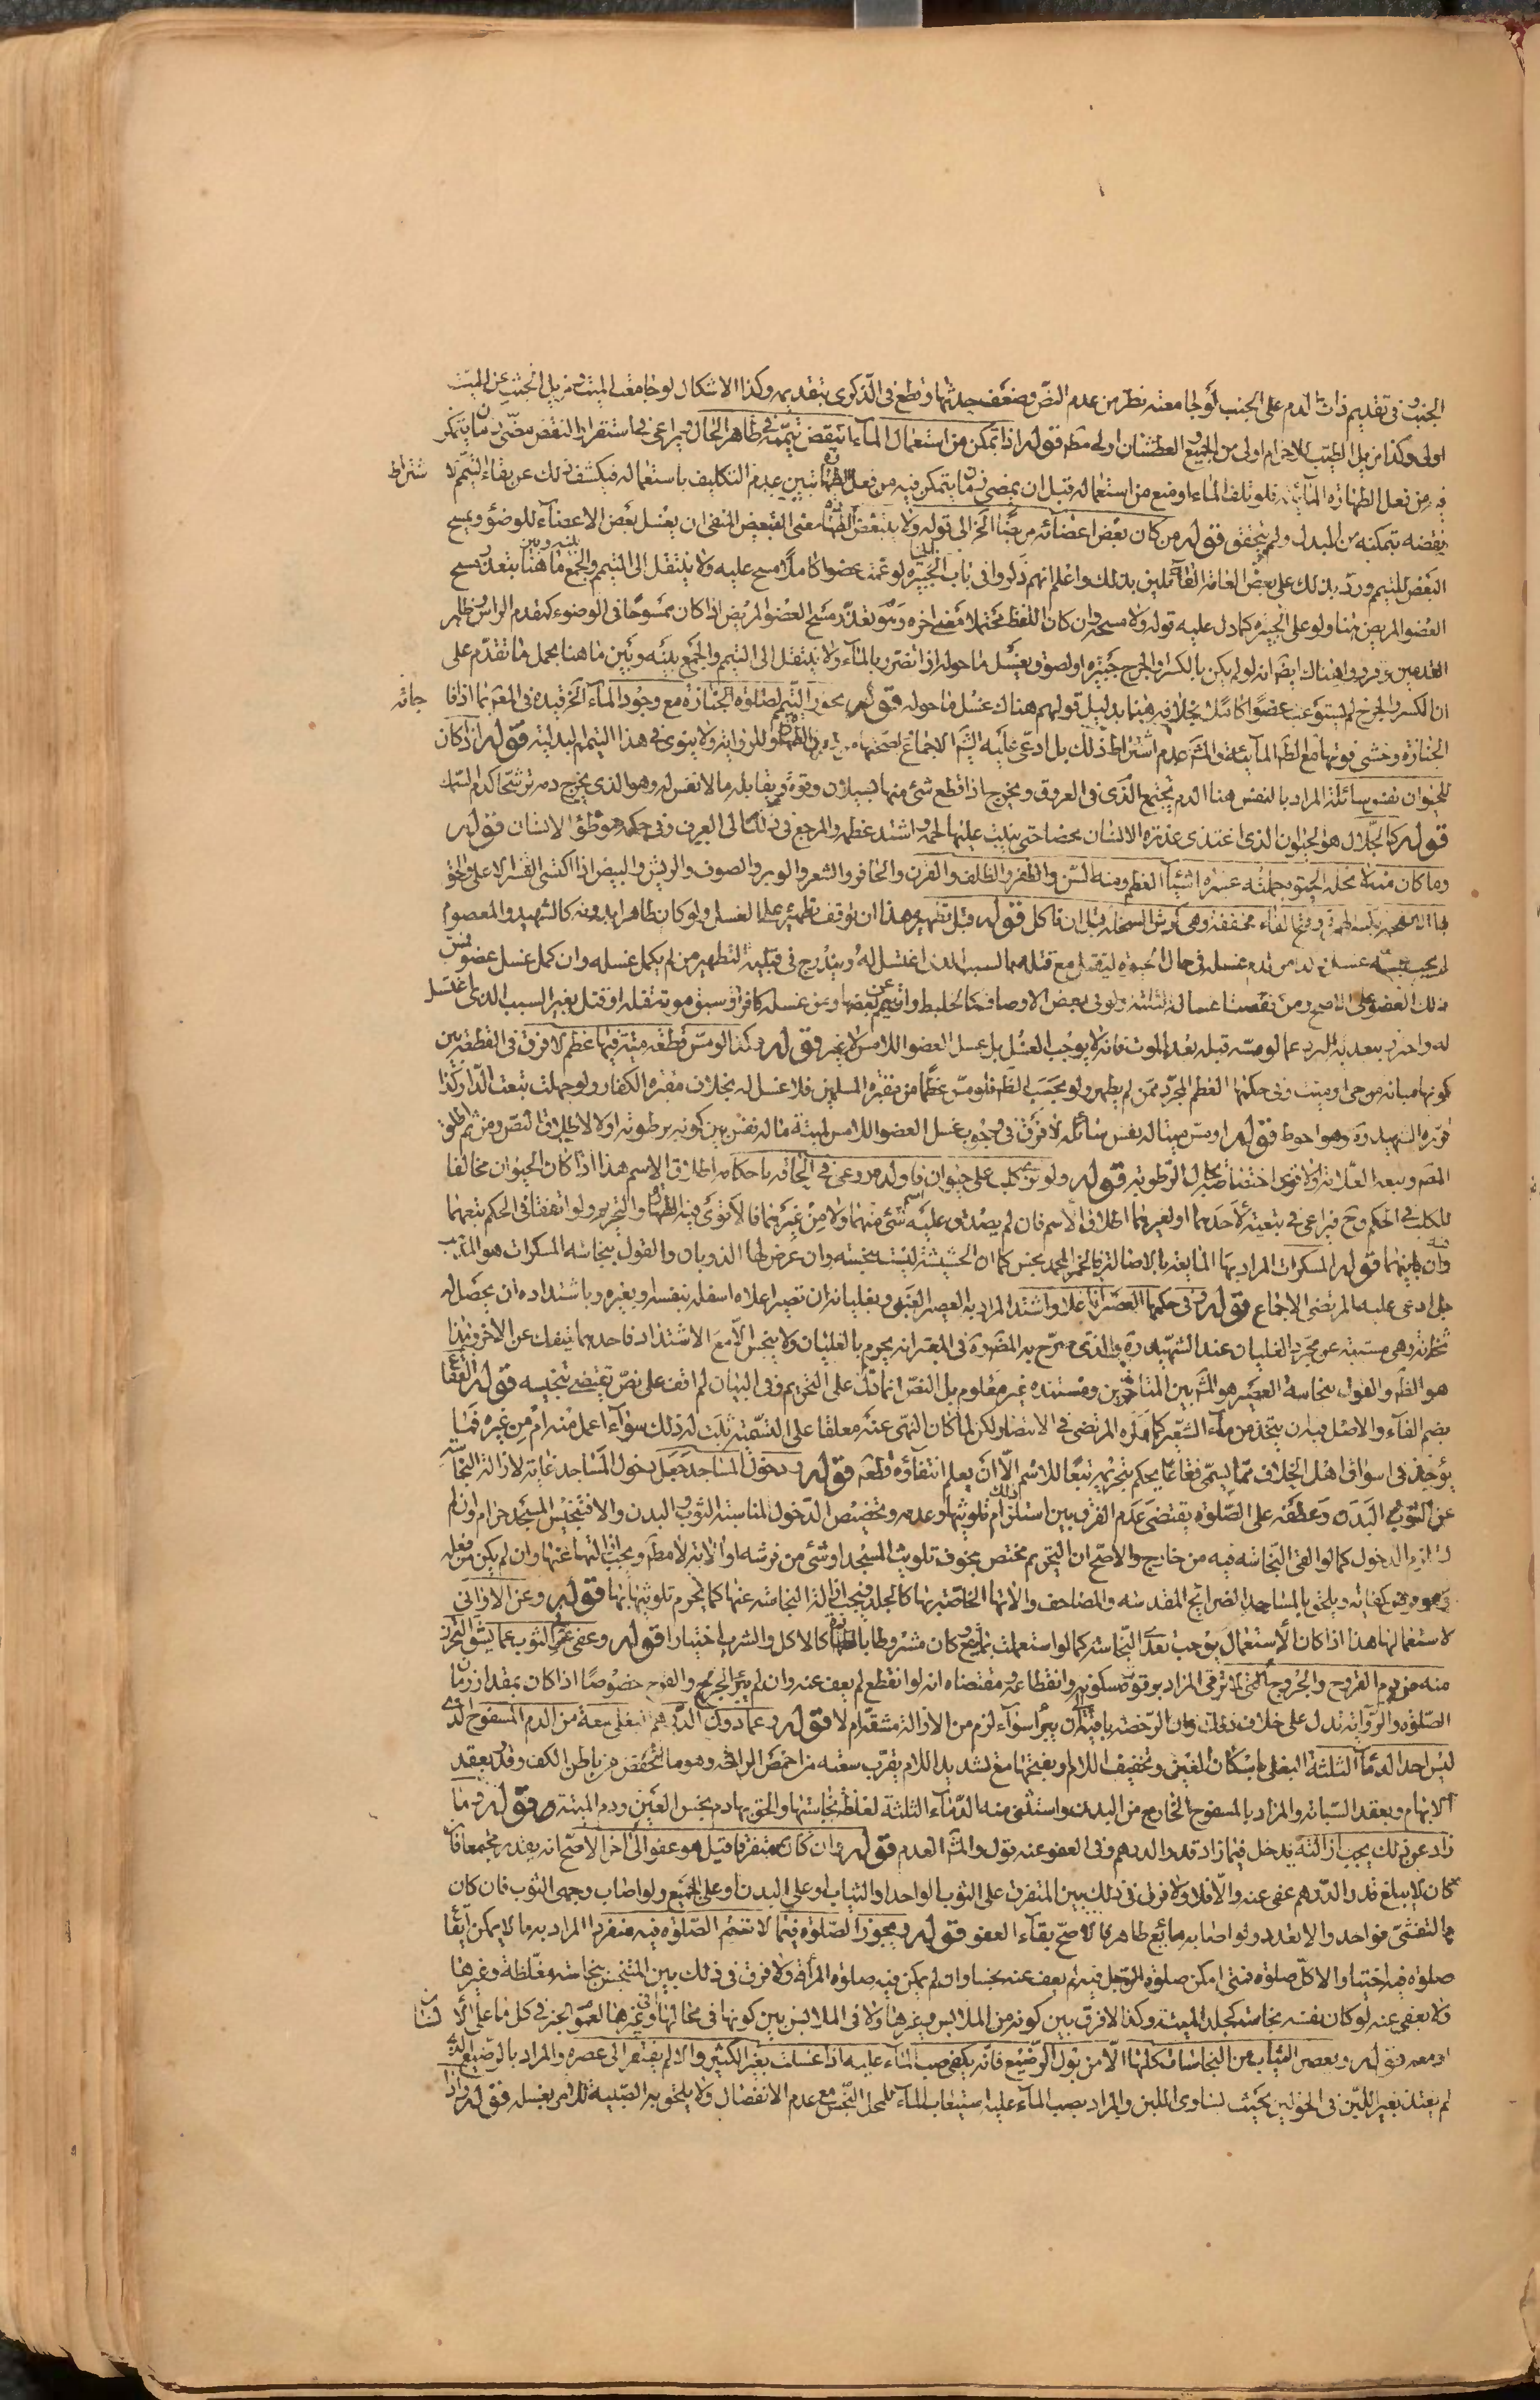 الجنب وفي تقديم ذات الدم على الجنب لو جامعته نظر من عدم النص وضعف حدثها وقطع في الذكرى بتقديمه وكذا الاشكال لو جامعت الميت ومزيل الخبث عن الميت
اولى وكذا مزيل الطيب للاحرام اولى من الجميع والعطشان اولى مطم قوله اذا تمكن من استعمال الماء انتقض تيممه في ظاهر الحال ويراعى في استقرار النقض مضى زمان يتمكن
فيه من فعل الطهارة المائية فلو تلف الماء او منع من استعماله قبل ان يمضى زمان يتمكن فيه من فعل الطهارة تبين عدم التكليف باستعماله فيكشف ذلك عن بقاء التيمم لاشتراط
نقضه بتمكنه من المبدل ولم يتحقق قوله من كان بعض اعضائه مريضا الخ الى قوله ولا يتبعض الطهارة معنى التبعيض المنفى ان يغسل بعض الاعضاء للوضوء ويمسح
البعض للتيمم ورد بذلك على بعض العامة القائلين بذلك واعلم انهم ذكروا في باب الجبيرة لو عمت عضوا كاملا مسح عليه ولا ينتقل الى التيمم والجمع بينه وبين ما هنا بتعذر مسح
العضو المريض هنا ولو على الجبيرة كما دل عليه قوله ولا مسحه وان كان اللفظ محتملا معنى اخره وهو تعذر مسح العضو المريض اذا كان ممسوحا في الوضوء كمقدم الراس وظاهر
القدمين وقرروا هناك ايضا انه لو لم يكن بالكسر والجرح جبيرة او لصوق يغسل ما حوله اذا تضرر بالماء ولا ينتقل الى التيمم والجمع بينه وبين ما هنا بحمل ما تقدم على
ان الكسر والجرح لم يستوعب عضوا كاملا بخلافه هنا بدليل قولهم هناك غسل ما حوله قوله يجوز التيمم لصلوة الجنازة مع وجود الماء الخ قيده في المعتبر بما اذا فاجأته
الجنازة وخشى فوتها مع الطهارة المائية والمشهور عدم اشتراط ذلك بل ادعى عليه الشيخ الاجماع لصحتها من دون الطهارة وللرواية ولا ينوى في هذا التيمم البدلية قوله اذا كان
للحيوان نفس سائلة المراد بالنفس هنا الدم يجتمع الذى في العروق ويخرج اذا قطع شئ منها بسيلان وقوة ويقابله ما لا نفس له وهو الذى يخرج دمه ترشحا كدم السمك
قوله كالجلال هو الحيوان الذى اغتذى عذرة الانسان محضا حتى ينبت عليها لحمه واشتد عظمه والمرجع في ذلك الى العرف وفي حكمه موطوء الانسان قوله
وما كان منه لا تحله الحيوة جملته عشرة اشياء العظم ومنه السن والظفر والظلف والقرن والحافر والشعر والوبر والصوف والريش والبيض اذا اكتسى القشر الاعلى والانفحة
بكسر الهمزة وفتح الفاء مخففة وهى كرش السخلة قبل ان تاكل قوله قبل تطهيره هذا ان توقف تطهيره على الغسل ولو كان طاهرا بدونه كالشهيد والمعصوم
لم يجب بمسه غسل ومن قدم غسله في حال الحيوة ليقتل مع قتله بالسبب الذى اغتسل له ويندرج في قبلية التطهير من لم يكمل غسله وان كمل غسل عضو مس
ذلك العضو على الاصح ومن نقصت اغساله الثلثة ولو في بعض الاوصاف كالخليط وان تيمم عن بعضها ومن غسله كافر او سبق موته قتله او قتل بغير السبب الذى اغتسل
له واحترز ببعد برده بالموت عما لو مسه قبله بعد الموت فانه لا يوجب الغسل بل غسل العضو اللامس لا غير قوله وكذا لو مس قطعة ميتة فيها عظم لا فرق في القطعة بين
كونها مبانة من حى او ميت وفي حكمها العظم المجرد ممن لم يطهر ولو بحسب الظاهر فلو مس عظما من مقبرة المسلمين فلا غسل له بخلاف مقبرة الكفار ولو جهلت تبعت الدار وكذا
قرره الشهيد ره وهو احوط قوله او مس ميتا له نفس سائلة لا فرق في وجوب غسل العضو اللامس لميتة ما له نفس بين كونه برطوبة او لا لاطلاق النص ومن ثم اطلق
المصنف وتبعه العلامة والاقوى اختصاصه بحال الرطوبة قوله ولو نزى كلب على حيوان فاولده روعى في الحاقه باحكامه اطلاق الاسم هذا اذا كان الحيوان مخالفا
للكلب في الحكم وح فيراعى في تبعيته لاحدهما او لغيرهما اطلاق الاسم فان لم يصدق عليه اسم شئ منهما ولا من غيرهما فالاقوى فيه الطهارة والتحريم ولو اتفقا في الحكم تبعهما
وان باينهما قوله المسكرات المراد بها المايعة بالاصالة فالخمر المجمد نجس كما ان الحشيشة ليست نجسة وان عرض لها الذوبان والقول بنجاسة المسكرات هو المذهب
بل ادعى عليه المرتضى الاجماع قوله وفي حكمها العصير اذا غلا واشتد المراد به العصير العنبى وبغليانه ان تصير اعلاه اسفله بنفسه او بغيره وباشتداده ان يحصل له
ثخانة وهى مسببة عن مجرد الغليان عند الشهيد ره والذى صرح به المص ره في المعتبر انه يحرم بالغليان ولا ينجس الا مع الاشتداد فاحدهما ينفك عن الاخر وهذا
هو الظاهر والقول بنجاسة العصير هو المشهور بين المتاخرين ومستنده غير معلوم بل النص انما دل على التحريم وفي البيان لم اقف على نص يقتضى تنجيسه قوله الفقاع
بضم الفاء والاصل فيه ان يتخذ من ماء الشعير كما ذكره المرتضى في الانتصار ولكن لما كان النهى عنه معلقا على التسمية ثبت له ذلك سواء عمل منه ام من غيره فما
يوجد في اسواق اهل الخلاف مما يسمى فقاعا يحكم بتحريمه تبعا للاسم الا ان يعلم انتفاؤه قطعا قوله ودخول المساجد جعل دخول المساجد غاية لازالة النجاسة
عن الثوب والبدن وعطفه على الصلوة يقتضى عدم الفرق بين استلزام ذلك تلويثها وعدمه وتخصيص الدخول لمناسبة الثوب والبدن والا فتنجيس المسجد حرام وان لم
يستلزم الدخول كما لو القى النجاسة فيه من خارج والاصح ان التحريم مختص بخوف تلويث المسجد او شئ من فرشه او الاته لا مطم ويجب ازالتها عنها وان لم يكن من فعله
وهو وجوب كفائى ويلحق بالمساجد الضرائح المقدسة والمصاحف والاتها الخاصة بها كالجلد فيجب ازالة النجاسة عنها كما يحرم تلويثها بها قوله وعن الاوانى
لاستعمالها هذا اذا كان الاستعمال يوجب تعدى النجاسة كما لو استعملت بمايع وكان مشروطا بالطهارة كالاكل والشرب اختيارا قوله وعفى عن الثوب عما يشق التحرز
منه من دم القروح والجروح التى لا ترقى المراد برقوها سكون دمها وانقطاعه ومقتضاه انه لو انقطع لم يعف عنه وان لم يبرء الجرح والقرح خصوصا اذا كان بمقدار زمان
الصلوة والرواية تدل على خلاف ذلك وان الرخصة باقية الى ان يبرأ سواء لزم من الازالة مشقة ام لا قوله وعما دون الدرهم البغلى سعة من الدم المسفوح الذى
ليس احد الدماء الثلثة البغلى باسكان الغين وتخفيف اللام او بفتحها مع تشديد اللام يقرب سعته من اخمص الراحة وهو ما انخفض من باطن الكف وقدر بعقد
الابهام وبعقد السبابة والمراد بالمسفوح الخارج من البدن واستثنى منه الدماء الثلثة لغلظ نجاستها والحق بها دم نجس العين ودم الميتة قوله وما
زاد عن ذلك يجب ازالته يدخل فيما زاد قدر الدرهم وفي العفو عنه قول والمشهور العدم قوله وان كان متفرقا قيل هو عفو الى اخره الاصح انه يقدر مجتمعا فان
كان لا يبلغ قدر الدرهم عفى عنه والا فلا ولا فرق في ذلك بين المتفرق على الثوب الواحد او الثياب او على البدن او على الجميع ولو اصاب وجهى الثوب فان كان
بالتفشى فواحد والا تعدد ولو اصابه مايع طاهر فالاصح بقاء العفو قوله ويجوز الصلوة فيما لا تتم الصلوة فيه منفردا المراد به ما لا يمكن ايقاع
صلوة فيه اختيارا لا كل صلوة فمتى امكن صلوة الرجل فيه لم يعف عنه نجسا وان لم يمكن فيه صلوة المرأة ولا فرق في ذلك بين المتنجس بنجاسة مغلظة وغيرها
ولا يعفى عنه لو كان نفسه نجاسة كجلد الميتة وكذا لا فرق بين كونه من الملابس وغيرها ولا في الملابس بين كونها في محالها وفي غيرها لعموم الخبر في كل ما على الانسان
او معه قوله ويعصر الثياب من النجاسات كلها الا من بول الرضيع فانه يكفى صب الماء عليه اذا غسلت بغير الكثير والا لم يفتقر الى عصره والمراد بالرضيع الذى
لم يغتذ بغير اللبن في الحولين بحيث يساوى اللبن والمراد بصب الماء عليه استيعاب الماء للمحل النجس مع عدم الانفصال ولا يلحق به الصبية للامر بغسله قوله واذا